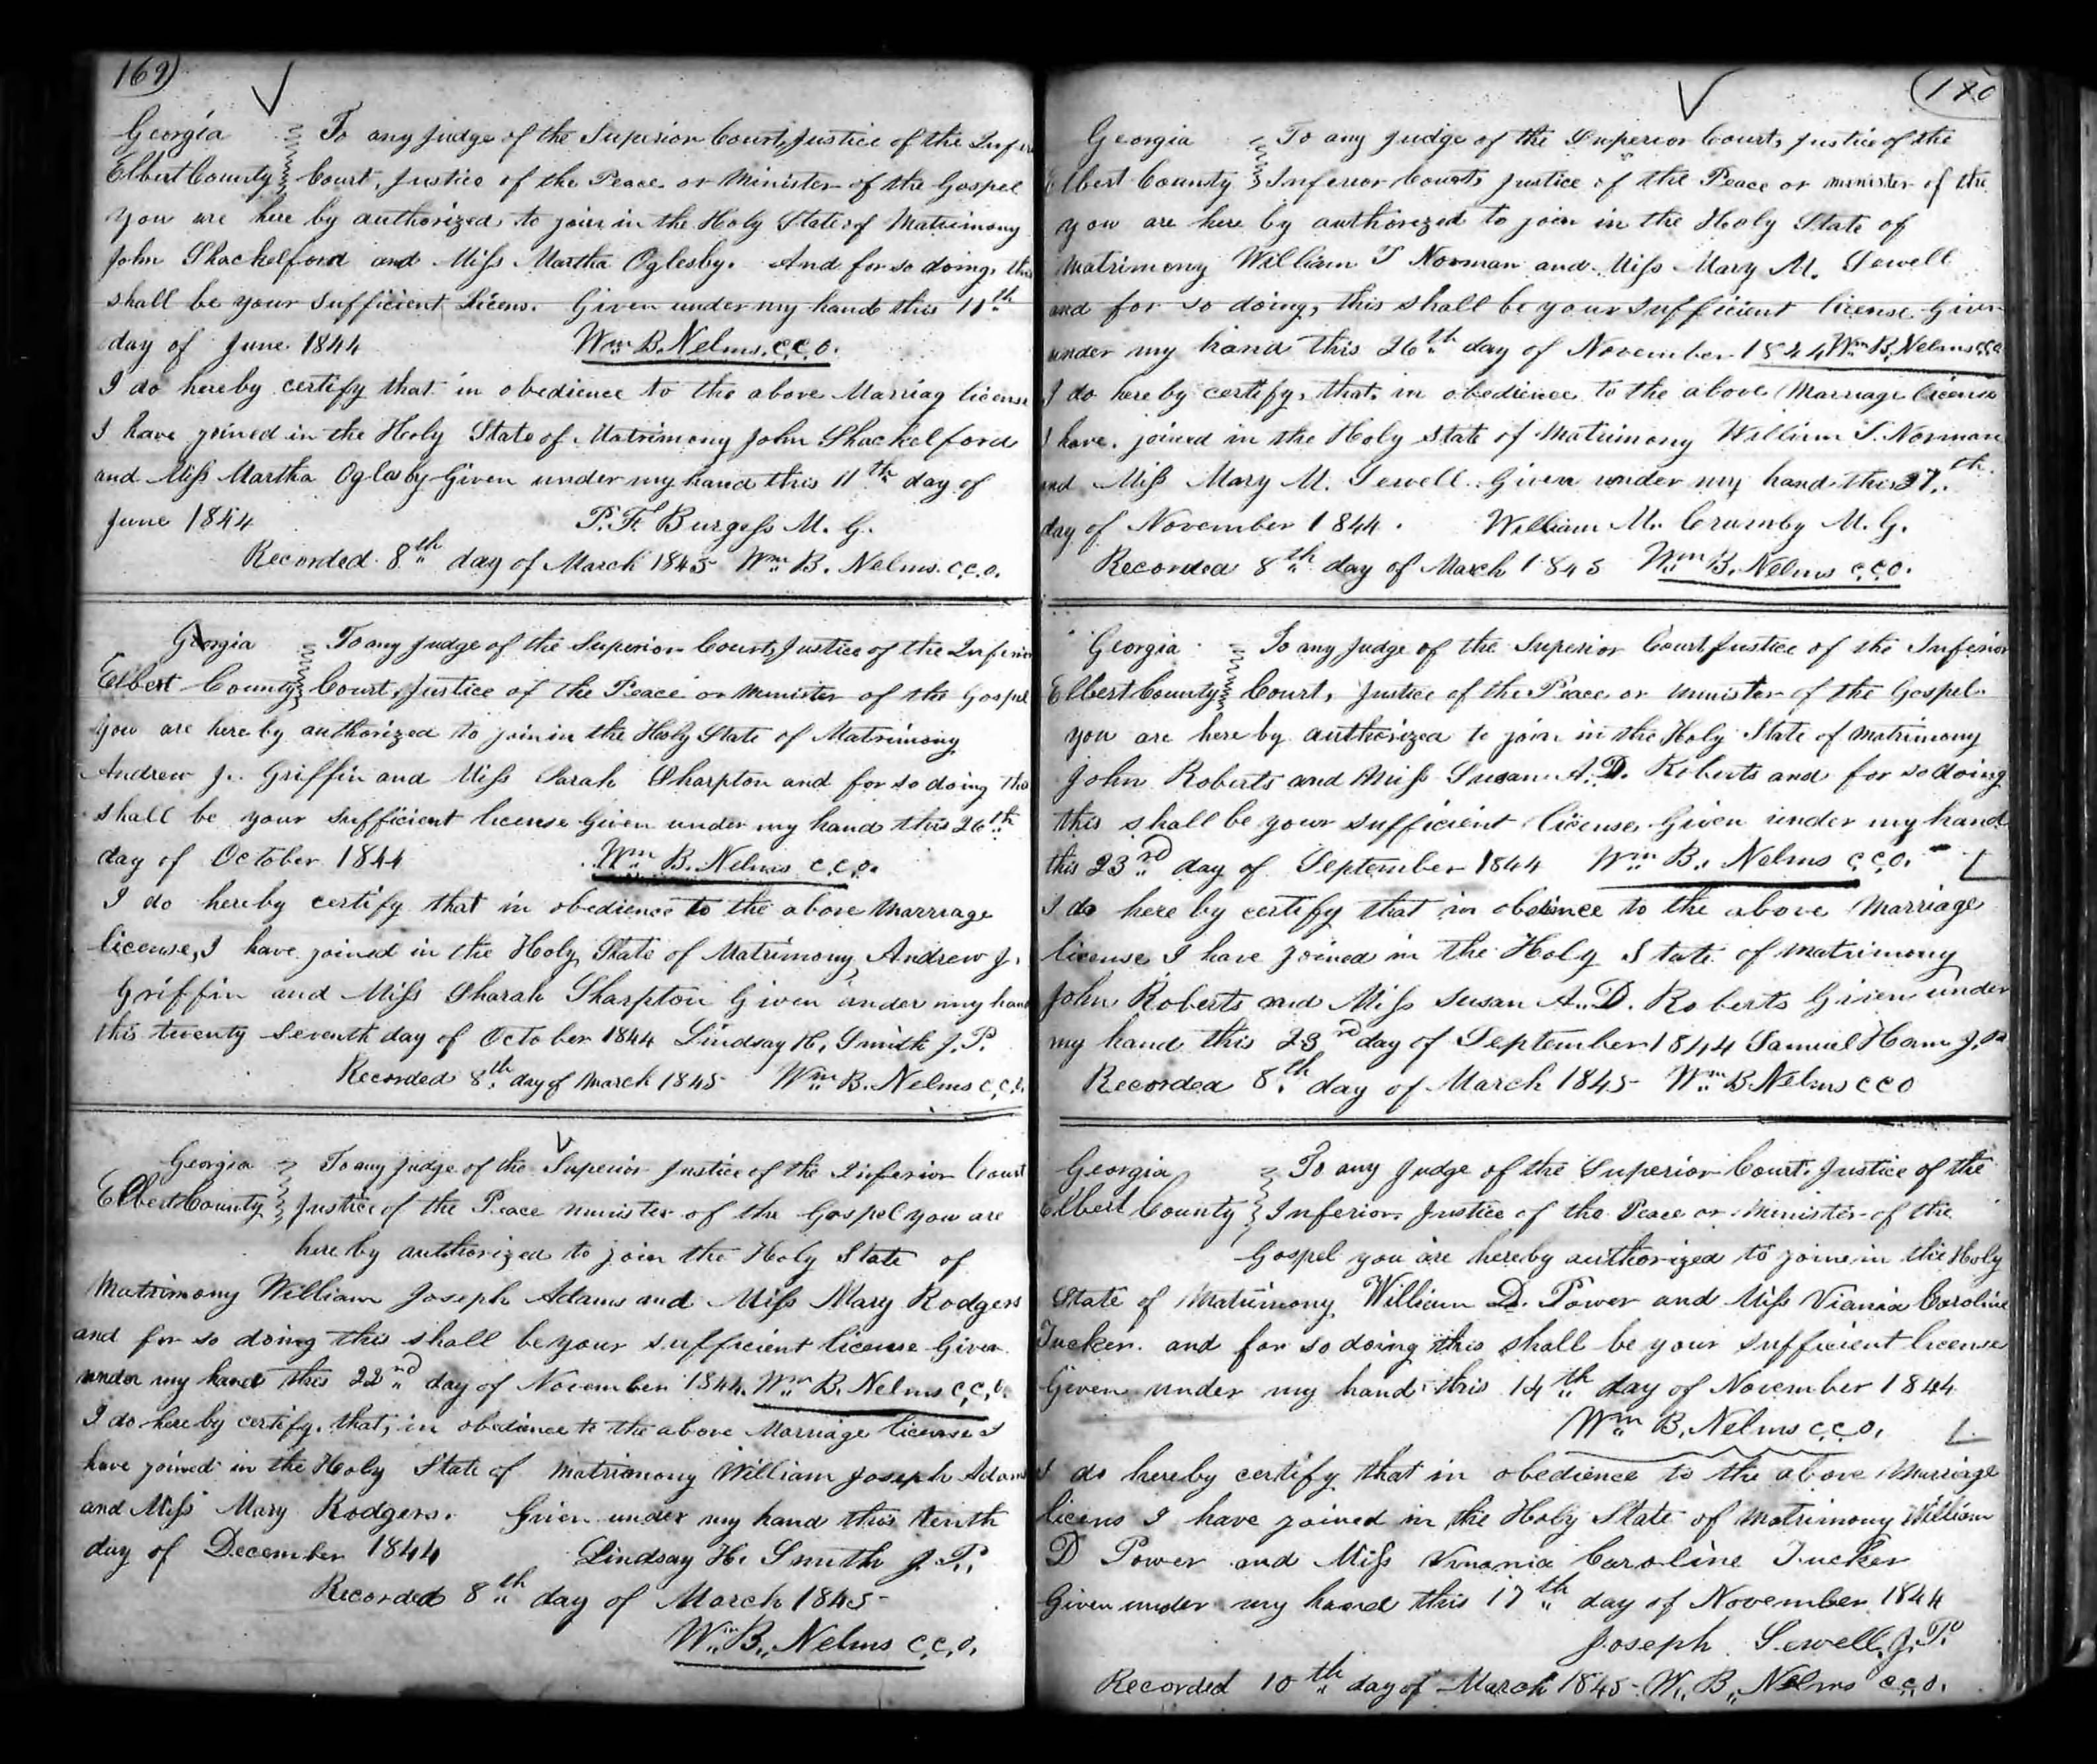 169)
Georgia To any Judge of the Superior Court, Justice of the
Elbert County Court, Justice of the Peace or Minister of the Gospel
You are here by authorized to join in the Holy State of Matrimony
John Shackelford and Miss Martha Oglesby. And for so doing, this
shall be your sufficient Licens. Given under my hand this 11th
day of June 1844 Wm B. Nelms. C.C.O.
I do hereby certify that in obedience to the above Marriag license
I have joined in the Holy State of Matrimony John Shackelford
and Miss Martha Oglesby Given under my hand this 11th day of
June 1844 P. F. Burgess M. G.
Recorded 8th day of March 1845 Wm B. Nelms. C.C.O.
Georgia To any Judge of the Superior Court, Justice of the Inferior
Elbert County Court, Justice of the Peace or Minister of the Gospel
You are here by authorized to join in the Holy State of Matrimony
Andrew J. Griffin and Miss Sarah Sharpton and for so doing this
shall be your sufficient license Given under my hand this 26th
day of October 1844 Wm B. Nelms C.C.O.
I do hereby certify that in obedience to the above Marriage
license, I have joined in the Holy State of Matrimony Andrew J.
Griffin and Miss Sharah Sharpton Given under my hand
this twenty seventh day of October 1844 Lindsay H. Smith J.P.
Recorded 8th day of March 1845 Wm B. Nelms C.C.O.
Georgia To any Judge of the Superior Justice of the Inferior Court
Elbert County Justice of the Peace minister of the Gospel you are
here by authorized to join the Holy State of
Matrimony William Joseph Adams and Miss Mary Rodgers
and for so doing this shall be your sufficient license Given
under my hand this 22nd day of November 1844. Wm B. Nelms C.C.O.
I do here by certify, that, in obedience to the above Marriage license I
have joined in the Holy State of Matrimony William Joseph Adams
and Miss Mary Rodgers. Given under my hand this tenth
day of December 1844 Lindsay H. Smith J.P.
Recorded 8th day of March 1845
Wm B. Nelms C.C.O.
(170
Georgia To any Judge of the Superior Court, Justice of the
Elbert County Inferior Court, Justice of the Peace or minister of the
you are here by authorized to join in the Holy State of
Matrimony William T Norman and Miss Mary M. Sewell
and for so doing, this shall be your sufficient license Given
under my hand this 26th day of November 1844 Wm B. Nelms CCO
I do here by certify, that, in obedience to the above Marriage license
I have joined in the Holy State of Matrimony William T. Norman
and Miss Mary M. Sewell. Given under my hand this 27th
day of November 1844. William M. Crumby M. G.
Recorded 8th day of March 1845 Wm B. Nelms C.C.O.
Georgia To any Judge of the Superior Court Justice of the Inferior
Elbert County Court, Justice of the Peace or Minister of the Gospel.
you are here by authorized to join in the Holy State of Matrimony
John Roberts and Miss Susan A. D. Roberts and for so doing
this shall be your sufficient license Given under my hand
this 23rd day of September 1844 Wm B. Nelms C.C.O.
I do here by certify that in obedince to the above Marriage
license I have joined in the Holy State of Matrimony
John Roberts and Miss Susan A. D. Roberts Given under
my hand this 23rd day of September 1844 Samuel Ham J.P.
Recorded 8th day of March 1845 Wm B. Nelms CCO
Georgia To any Judge of the Superior Court. Justice of the
Elbert County Inferior. Justice of the Peace or Minister of the
Gospel you are hereby authorized to joine in the Holy
State of Matrimony William D. Power and Miss Viania Caroline
Tucker. and for so doing this shall be your sufficient license
Given under my hand this 14th day of November 1844
Wm B. Nelms C.C.O.
I do hereby certify that in obedience to the above Marriage
licens I have joined in the Holy State of Matrimony William
D Power and Miss Caroline Tucker
Given under my hand this 17th day of November 1844
Joseph Sewell J.P.
Recorded 10th day of March 1845. W. B. Nelms C.C.O.